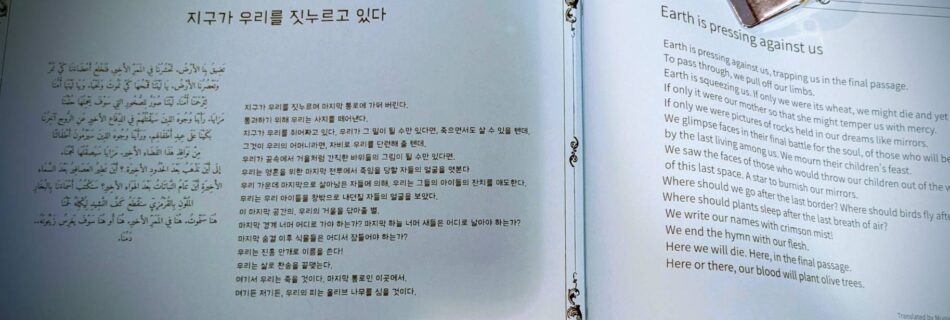 지구가 우리를 짓누르고 있다
تضيق بنا الأرض. تحشرنا في الممر الأخير، فنخلع أعضاءنا كي نمر
وتعصرنا الأرض. يا ليتنا قمحها كي نموت ونحيا. ويا ليتها أمنا
لترحمنا أمنا. ليتنا صور للصخور التي سوف يحملها حلمنا
مرايا. رأينا وجوه الذين سيقتلهم في الدفاع الأخير عن الروح آخرنا
بكينا على عيد أطفالهم. ورأينا وجوه الذين سيرمون أطفالنا
من نوافذ هذا الفضاء الأخير. مرايا سيصقلها نجمنا.
إلى أين نذهب بعد الحدود الأخيرة؟ أين تطير العصافير بعد السماء
الأخيرة أين تنام النباتات بعد الهواء الأخير؟ سنكتب أسماءنا بالبخار
الملون بالقرمزي سنقطع كف النشيد ليكمله لحمنا
هنا سنموت. هنا في الممر الأخير. هنا أو هنا سوف يغرس زيتونه..
دمنا.
지구가 우리를 짓누르며 마지막 통로에 가둬 버린다.
통과하기 위해 우리는 사지를 떼어낸다.
지구가 우리를 쥐어짜고 있다. 우리가 그 밀이 될 수만 있다면, 죽으면서도 살 수 있을 텐데.
그것이 우리의 어머니라면, 자비로 우리를 단련해 줄 텐데.
우리가 꿈속에서 거울처럼 간직한 바위들의 그림이 될 수만 있다면.
우리는 영혼을 위한 마지막 전투에서 죽임을 당할 자들의 얼굴을 엿본다
우리 가운데 마지막으로 살아남은 자들에 의해. 우리는 그들의 아이들의 잔치를 애도한다.
우리는 우리 아이들을 창밖으로 내던질 자들의 얼굴을 보았다.
이 마지막 공간의. 우리의 거울을 닦아줄 별.
마지막 경계 너머 어디로 가야 하는가? 마지막 하늘 너머 새들은 어디로 날아야 하는가?
마지막 숨결 이후 식물들은 어디서 잠들어야 하는가?
우리는 진홍 안개로 이름을 쓴다!
우리는 살로 찬송을 끝맺는다.
여기서 우리는 죽을 것이다. 마지막 통로인 이곳에서.
여기든 저기든, 우리의 피는 올리브 나무를 심을 것이다.
Earth is pressing against us
Earth is pressing against us, trapping us in the final passage.
To pass through, we pull off our limbs.
Earth is squeezing us. If only we were its wheat, we might die and yet
If only it were our mother so that she might temper us with mercy.
If only we were pictures of rocks held in our dreams like mirrors.
We glimpse faces in their final battle for the soul, of those who will be
by the last living among us. We mourn their children's feast.
We saw the faces of those who would throw our children out of the
of this last space. A star to burnish our mirrors.
Where should we go after the last border? Where should birds fly after
Where should plants sleep after the last breath of air?
We write our names with crimson mist!
We end the hymn with our flesh.
Here we will die. Here, in the final passage.
Here or there, our blood will plant olive trees.
Translated by